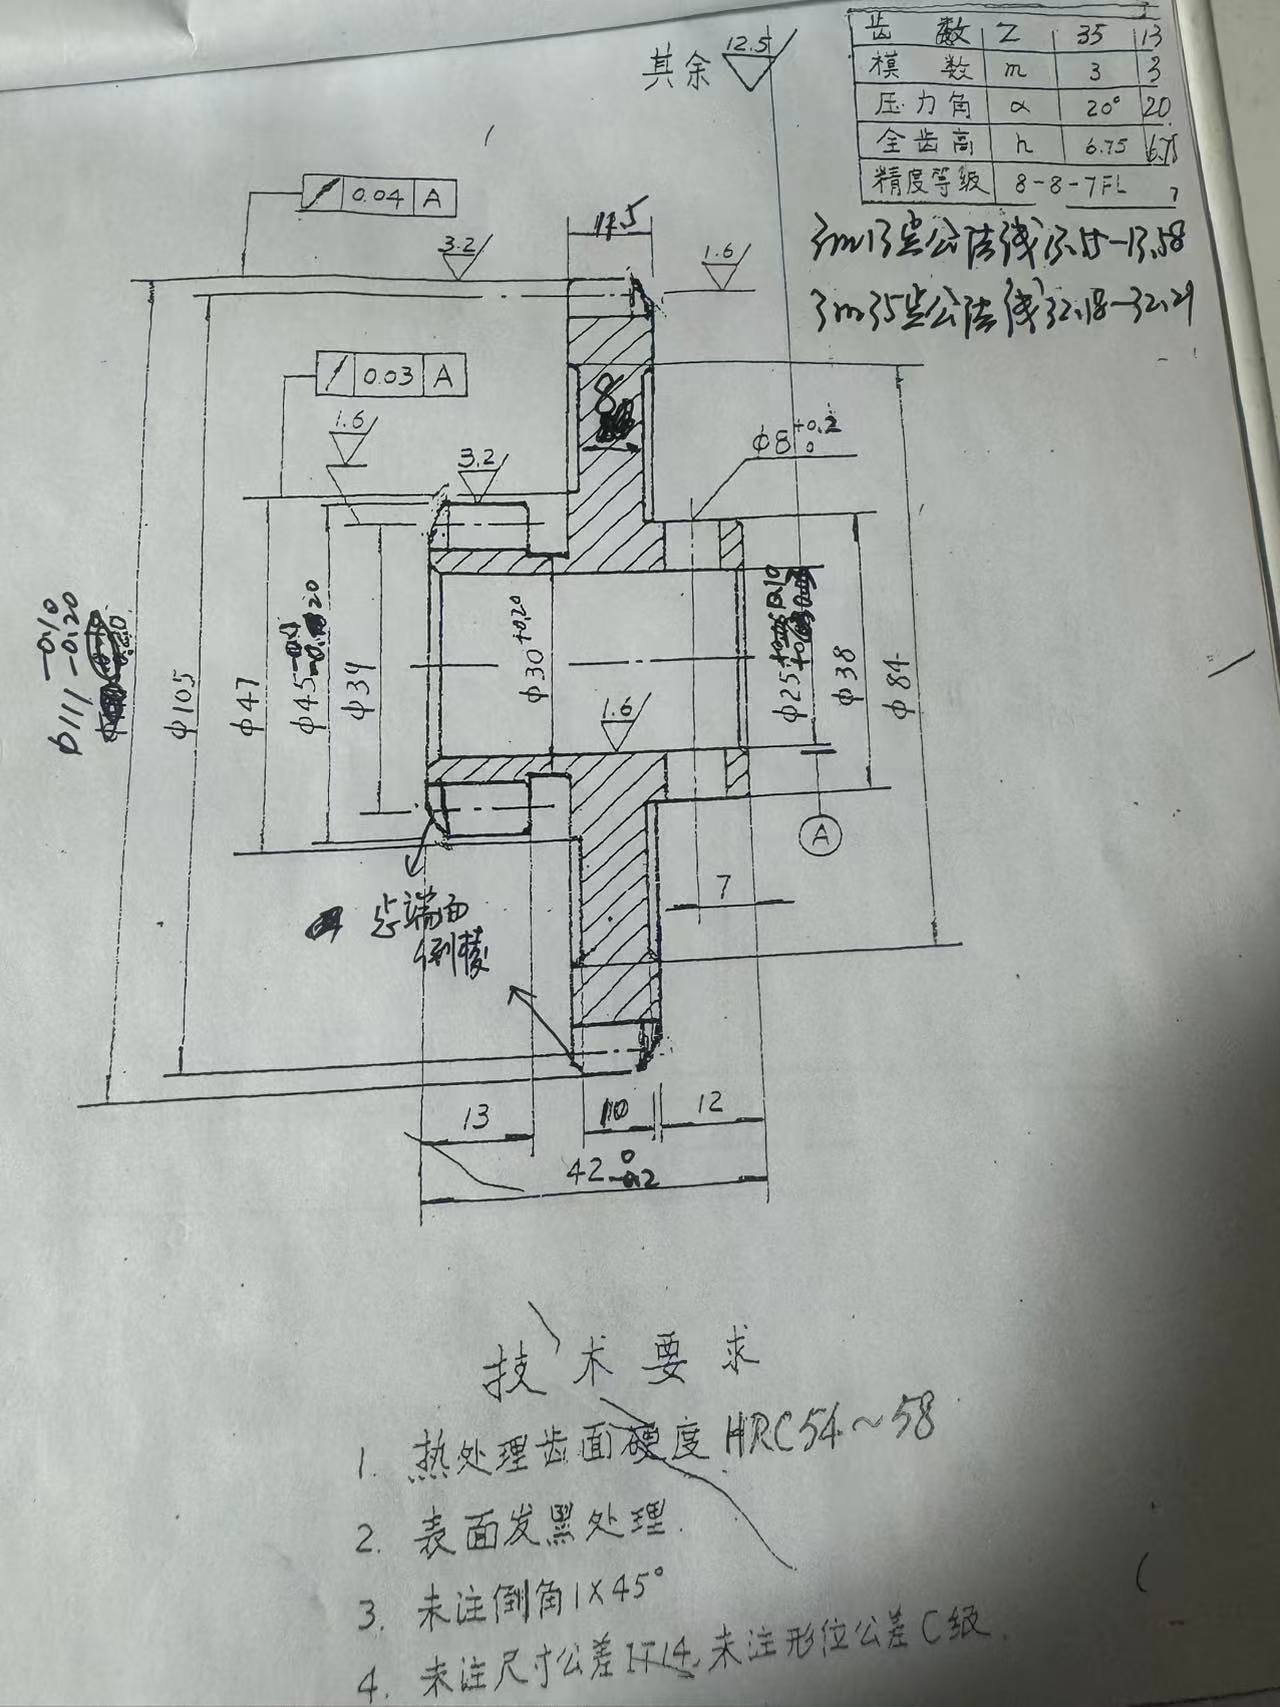 其余 12.5
齿 数 Z 35 13
模 数 m 3 3
压力角 α 20° 20
全齿高 h 6.75 6.75
精度等级 8-8-7FL 7
3m13齿公法线13.55-13.58
3m35齿公法线32.18-32.21
0.04 A
3.2
1.6
0.03 A
1.6
3.2
8
φ8 +0.2 0
φ111 -0.10 -0.20
φ105
φ47
φ45
φ39
φ30 +0.20
φ25
φ38
φ84
1.6
A
7
齿端面
倒棱
13
10
12
42 0 -0.2
技术要求
1. 热处理齿面硬度HRC54~58
2. 表面发黑处理.
3. 未注倒角1×45°
4. 未注尺寸公差IT14,未注形位公差C级.